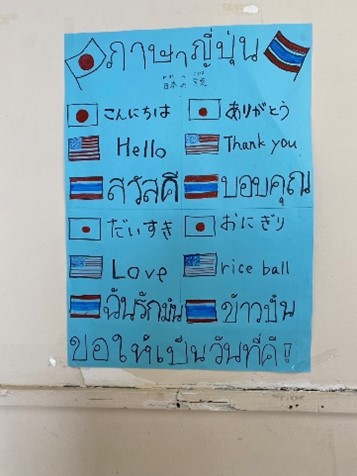 ภาษาญี่ปุ่น
こんにちは ありがとう
Hello Thank you
สวัสดี ขอบคุณ
だいすき おにぎり
Love rice ball
ฉันรักมัน ข้าวปั้น
ขอให้เป็นวันที่ดี!!